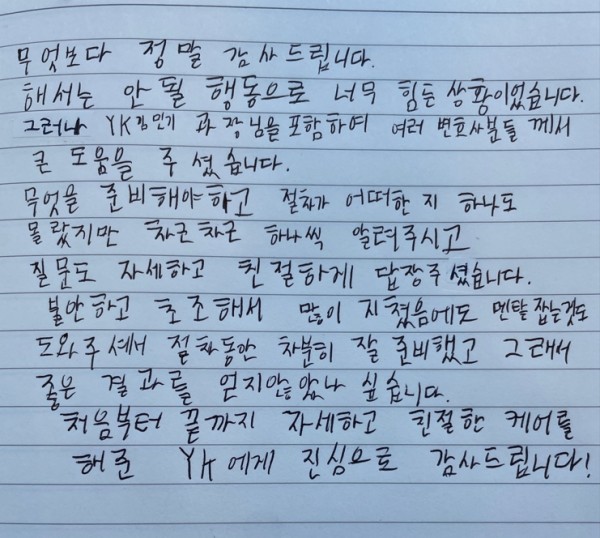 무엇보다 정말 감사드립니다.
해서는 안 될 행동으로 너무 힘든 상황이었습니다.
그러나 YK김민기 과장님을 포함하여 여러 변호사분들 께서
큰 도움을 주셨습니다.
무엇을 준비해야하고 절차가 어떠한 지 하나도
몰랐지만 차근차근 하나씩 알려주시고
질문도 자세하고 친절하게 답장주셨습니다.
불안하고 초조해서 많이 지쳤음에도 멘탈 잡는것도
도와주셔서 절차동안 차분히 잘 준비했고 그래서
좋은 결과를 얻지않았나 싶습니다.
처음부터 끝까지 자세하고 친절한 케어를
해준 YK에게 진심으로 감사드립니다!